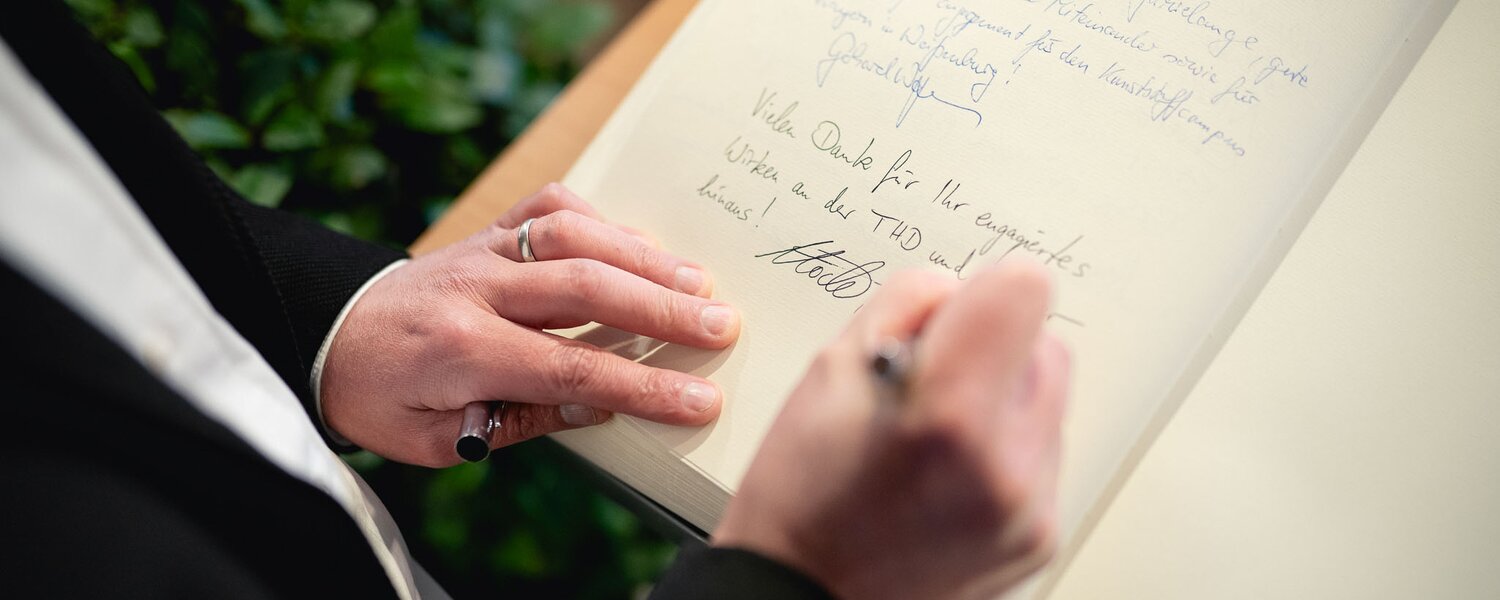 jahrelange, gute
Miteinander sowie für
engagement für den Kunststoffcampus
Bayern in Weißenburg!
Vielen Dank für Ihr engagiertes
Wirken an der THD und
hinaus!